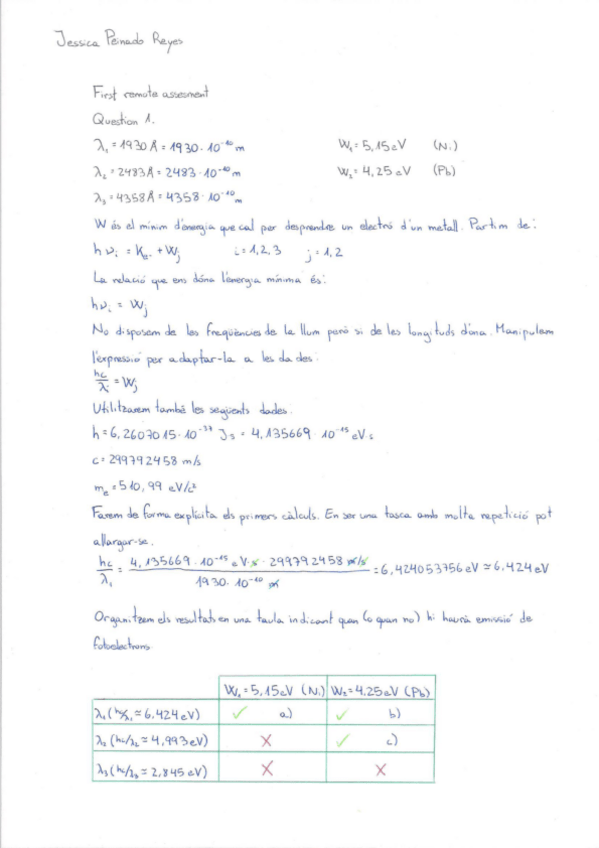 Jessica Peinado Reyes
First remote assesment
Question 1.
λ₁ = 1930 Å = 1930 · 10⁻¹⁰ m W₁ = 5,15 eV (Ni)
λ₂ = 2483 Å = 2483 · 10⁻¹⁰ m W₂ = 4,25 eV (Pb)
λ₃ = 4358 Å = 4358 · 10⁻¹⁰ m
W és el mínim d'energia que cal per desprendre un electró d'un metall. Partim de:
hνᵢ = Kₑ₋ + Wⱼ i = 1, 2, 3 j = 1, 2
La relació que ens dóna l'energia mínima és:
hνᵢ = Wⱼ
No disposem de les freqüències de la llum però si de les longituds d'ona. Manipulem
l'expressió per adaptar-la a les dades:
hc/λᵢ = Wⱼ
Utilitzarem també les següents dades.
h = 6,2607015 · 10⁻³⁴ J s = 4,135669 · 10⁻¹⁵ eV·s
c = 299792458 m/s
mₑ = 510,99 eV/c²
Farem de forma explícita els primers càlculs. En ser una tasca amb molta repetició pot
allargar-se.
hc/λ₁ = 4,135669 · 10⁻¹⁵ eV·s · 299792458 m/s / 1930 · 10⁻¹⁰ m = 6,424053756 eV ≃ 6,424 eV
Organitzem els resultats en una taula indicant quan (o quan no) hi haurà emissió de
fotoelectrons
W₁ = 5,15 eV (Ni) W₂ = 4,25 eV (Pb)
λ₁ (hc/λ₁ ≃ 6,424 eV) ✓ a) ✓ b)
λ₂ (hc/λ₂ ≃ 4,993 eV) X ✓ c)
λ₃ (hc/λ₃ ≃ 2,845 eV) X X